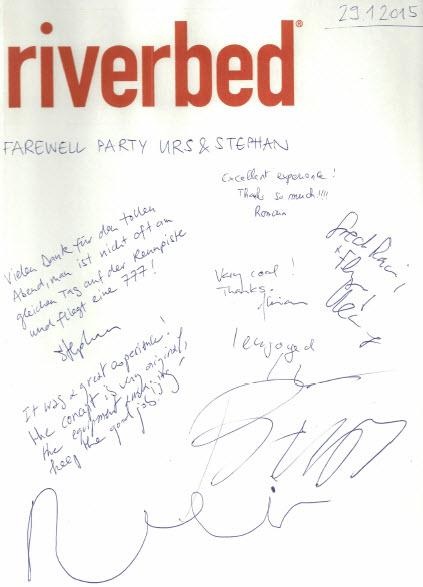 29.1.2015
riverbed®
FAREWELL PARTY URS & STEPHAN
Excellent experience!
Thanks so much!!!!
Romain
Vielen Dank für den tollen
Abend, man ist nicht oft am
gleichen Tag auf der Rennpiste
und fliegt eine 777!
Stephan
Very cool!
Thanks.
Great Racing
I enjoyed
It was a great experience!
the concept is very original,
the equipment
keep the good job